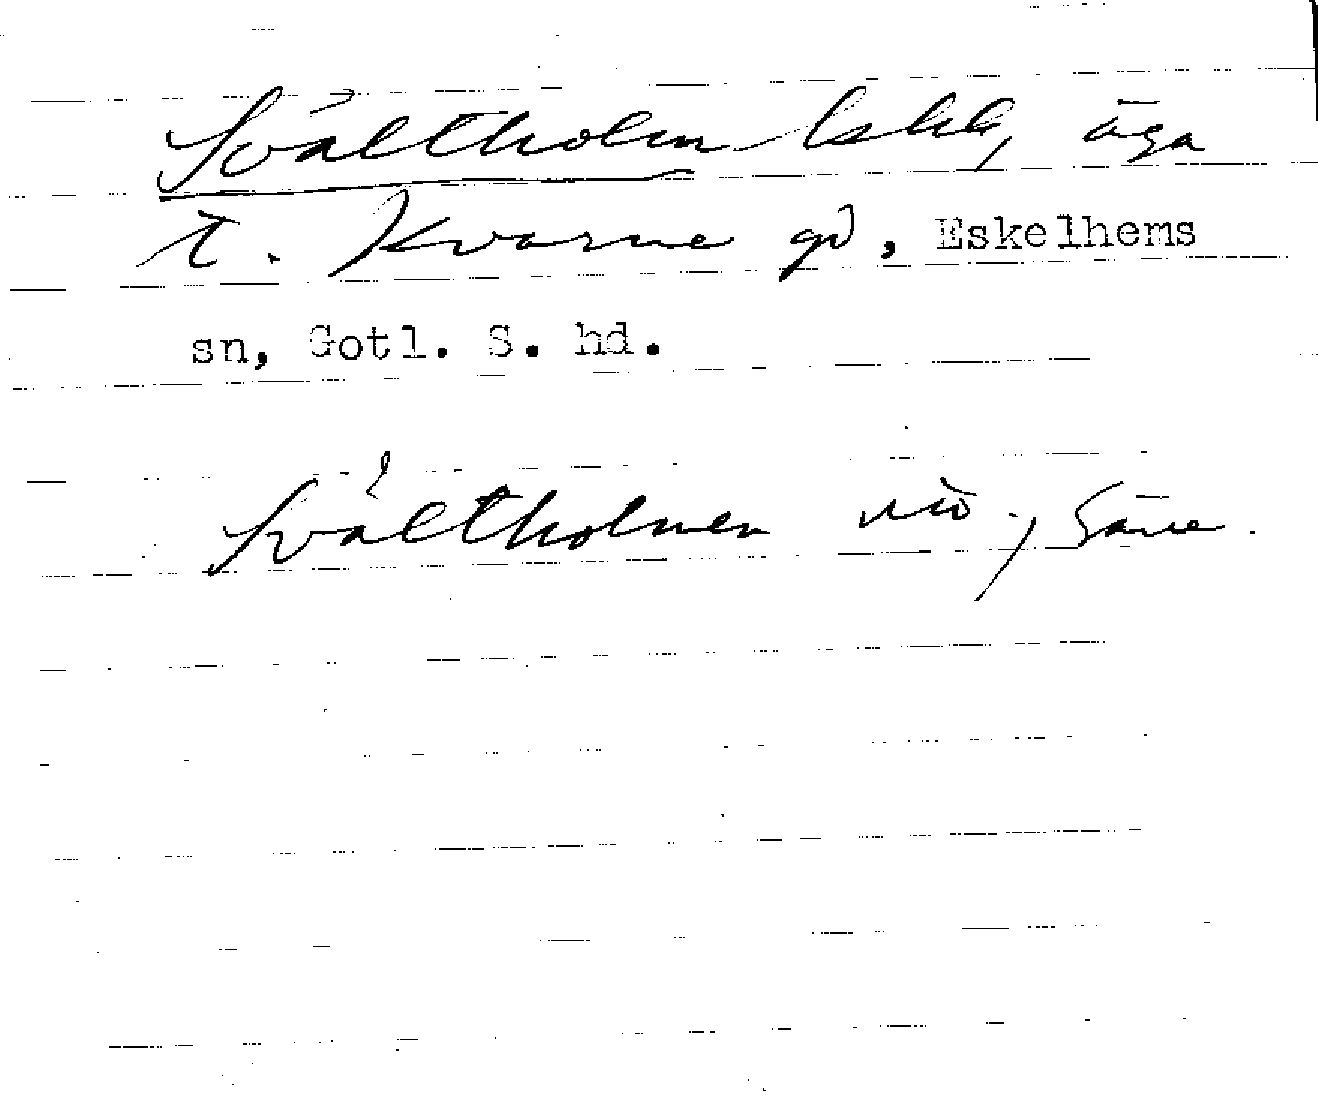 Svältholm bshl, äga
t. Kvarne gd, Eskelhems
sn, Gotl. S. hd.
Svältholmen Säve.